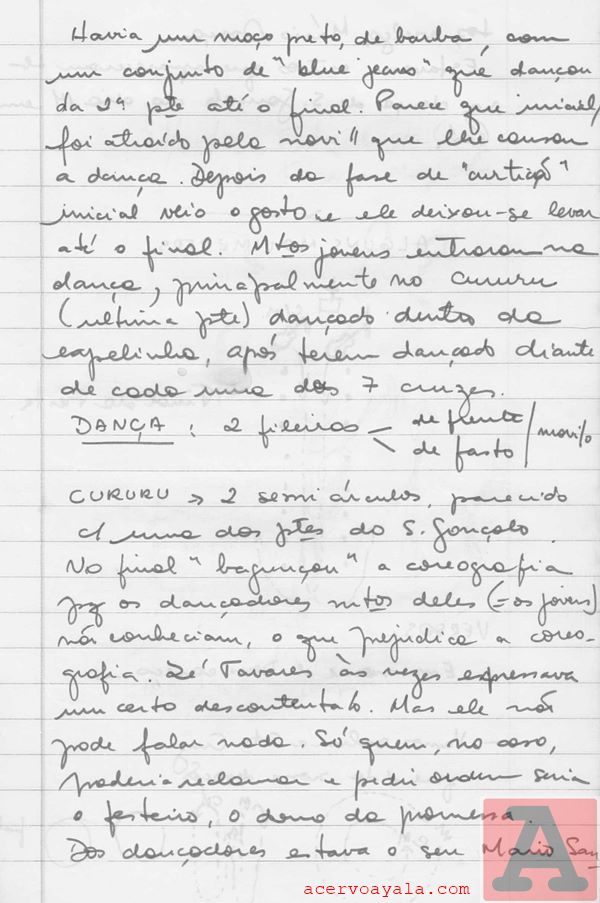 Havia um moço preto, de barba, com
um conjunto de "blue jeans" que dançou
da 1ª pte até o final. Parece que inicial/
foi atraído pela novi// que lhe causou
a dança. Depois da fase de "curtição"
inicial veio o gosto e ele deixou-se levar
até o final. Mtos jovens entraram na
dança, principalmente no cururu
(ultima pte) dançado dentro da
capelinha, após terem dançado diante
de cada uma das 7 cruzes.
DANÇA: 2 fileiras
de frente
de fasto
movi/o
CURURU → 2 semi círculos, parecido
c/ uma das ptes do S. Gonçalo.
No final "bagunçou" a coreografia
pq os dançadores mtos deles (= os jovens)
não conheciam, o que prejudica a coreo-
grafia. Zé Tavares às vezes expressava
um certo descontentato. Mas ele não
pode falar nada. Só quem, no caso,
poderia reclamar e pedir ordem seria
o festeiro, o dono da promessa.
Dos dançadores estava o seu Mario San
A
acervoayala.com